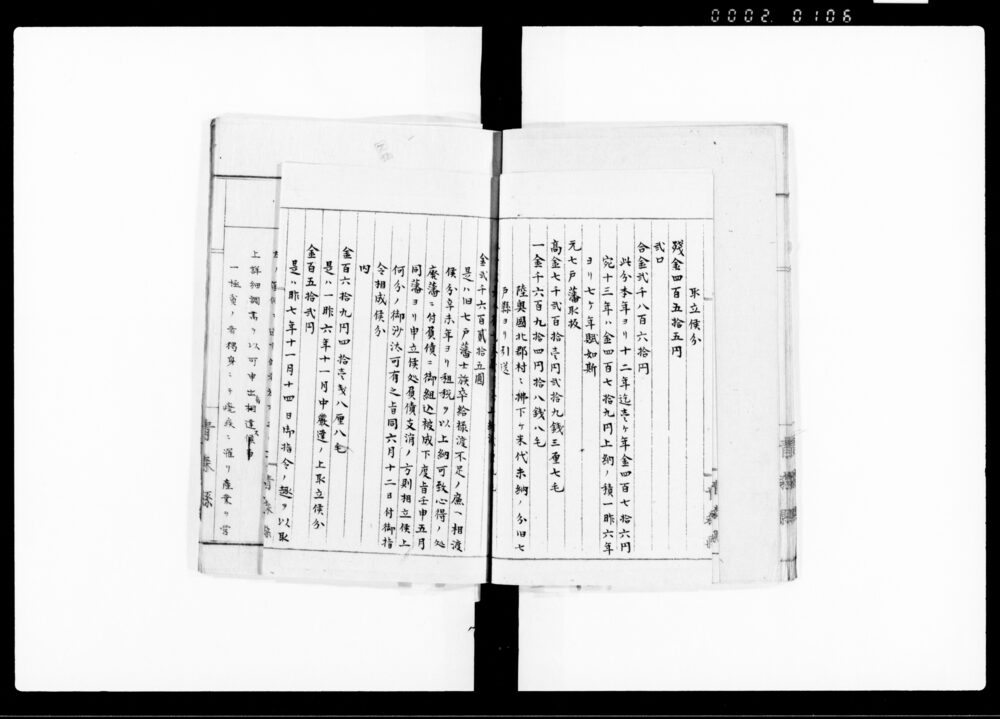 0002 0106
取立候分
残金四百五拾五円
弐口
合金弐千八百六拾円
此分本年ヨリ十二年迄壱ヶ年金四百七拾六円
宛十三年ハ金四百七拾九円上納ノ積一昨六年
ヨリ七ヶ年賦如斯
元七戸藩取扱
高金七千弐百拾壱円弐拾九銭三厘七毛
一金千六百九拾四円拾八銭八毛
陸奥國北郡村々拂下ヶ米代未納ノ分旧七
戸縣ヨリ引送
金弐千六百貳拾五圓
是ハ旧七戸藩士族卒給禄渡不足ノ廉へ相渡
候分辛未年ヨリ租税ヲ以上納可致心得ノ処
廃藩ニ付負債ニ御組込被成下度旨壬申五月
同藩ヨリ申立候処負債支消ノ方則相立候上
何分ノ御沙汰可有之旨同六月十二日付御指
令相成候分
内
金百六拾九円四拾壱銭八厘八毛
是ハ一昨六年十一月中嚴達ノ上取立候分
金百五拾弐円
是ハ昨七年十一月十四日御指令ノ趣ヲ以取
上詳細調書ヲ以可申出相達候事
一極貧ノ者獨身ニテ癈疾ニ罹リ産業ヲ営
青森縣